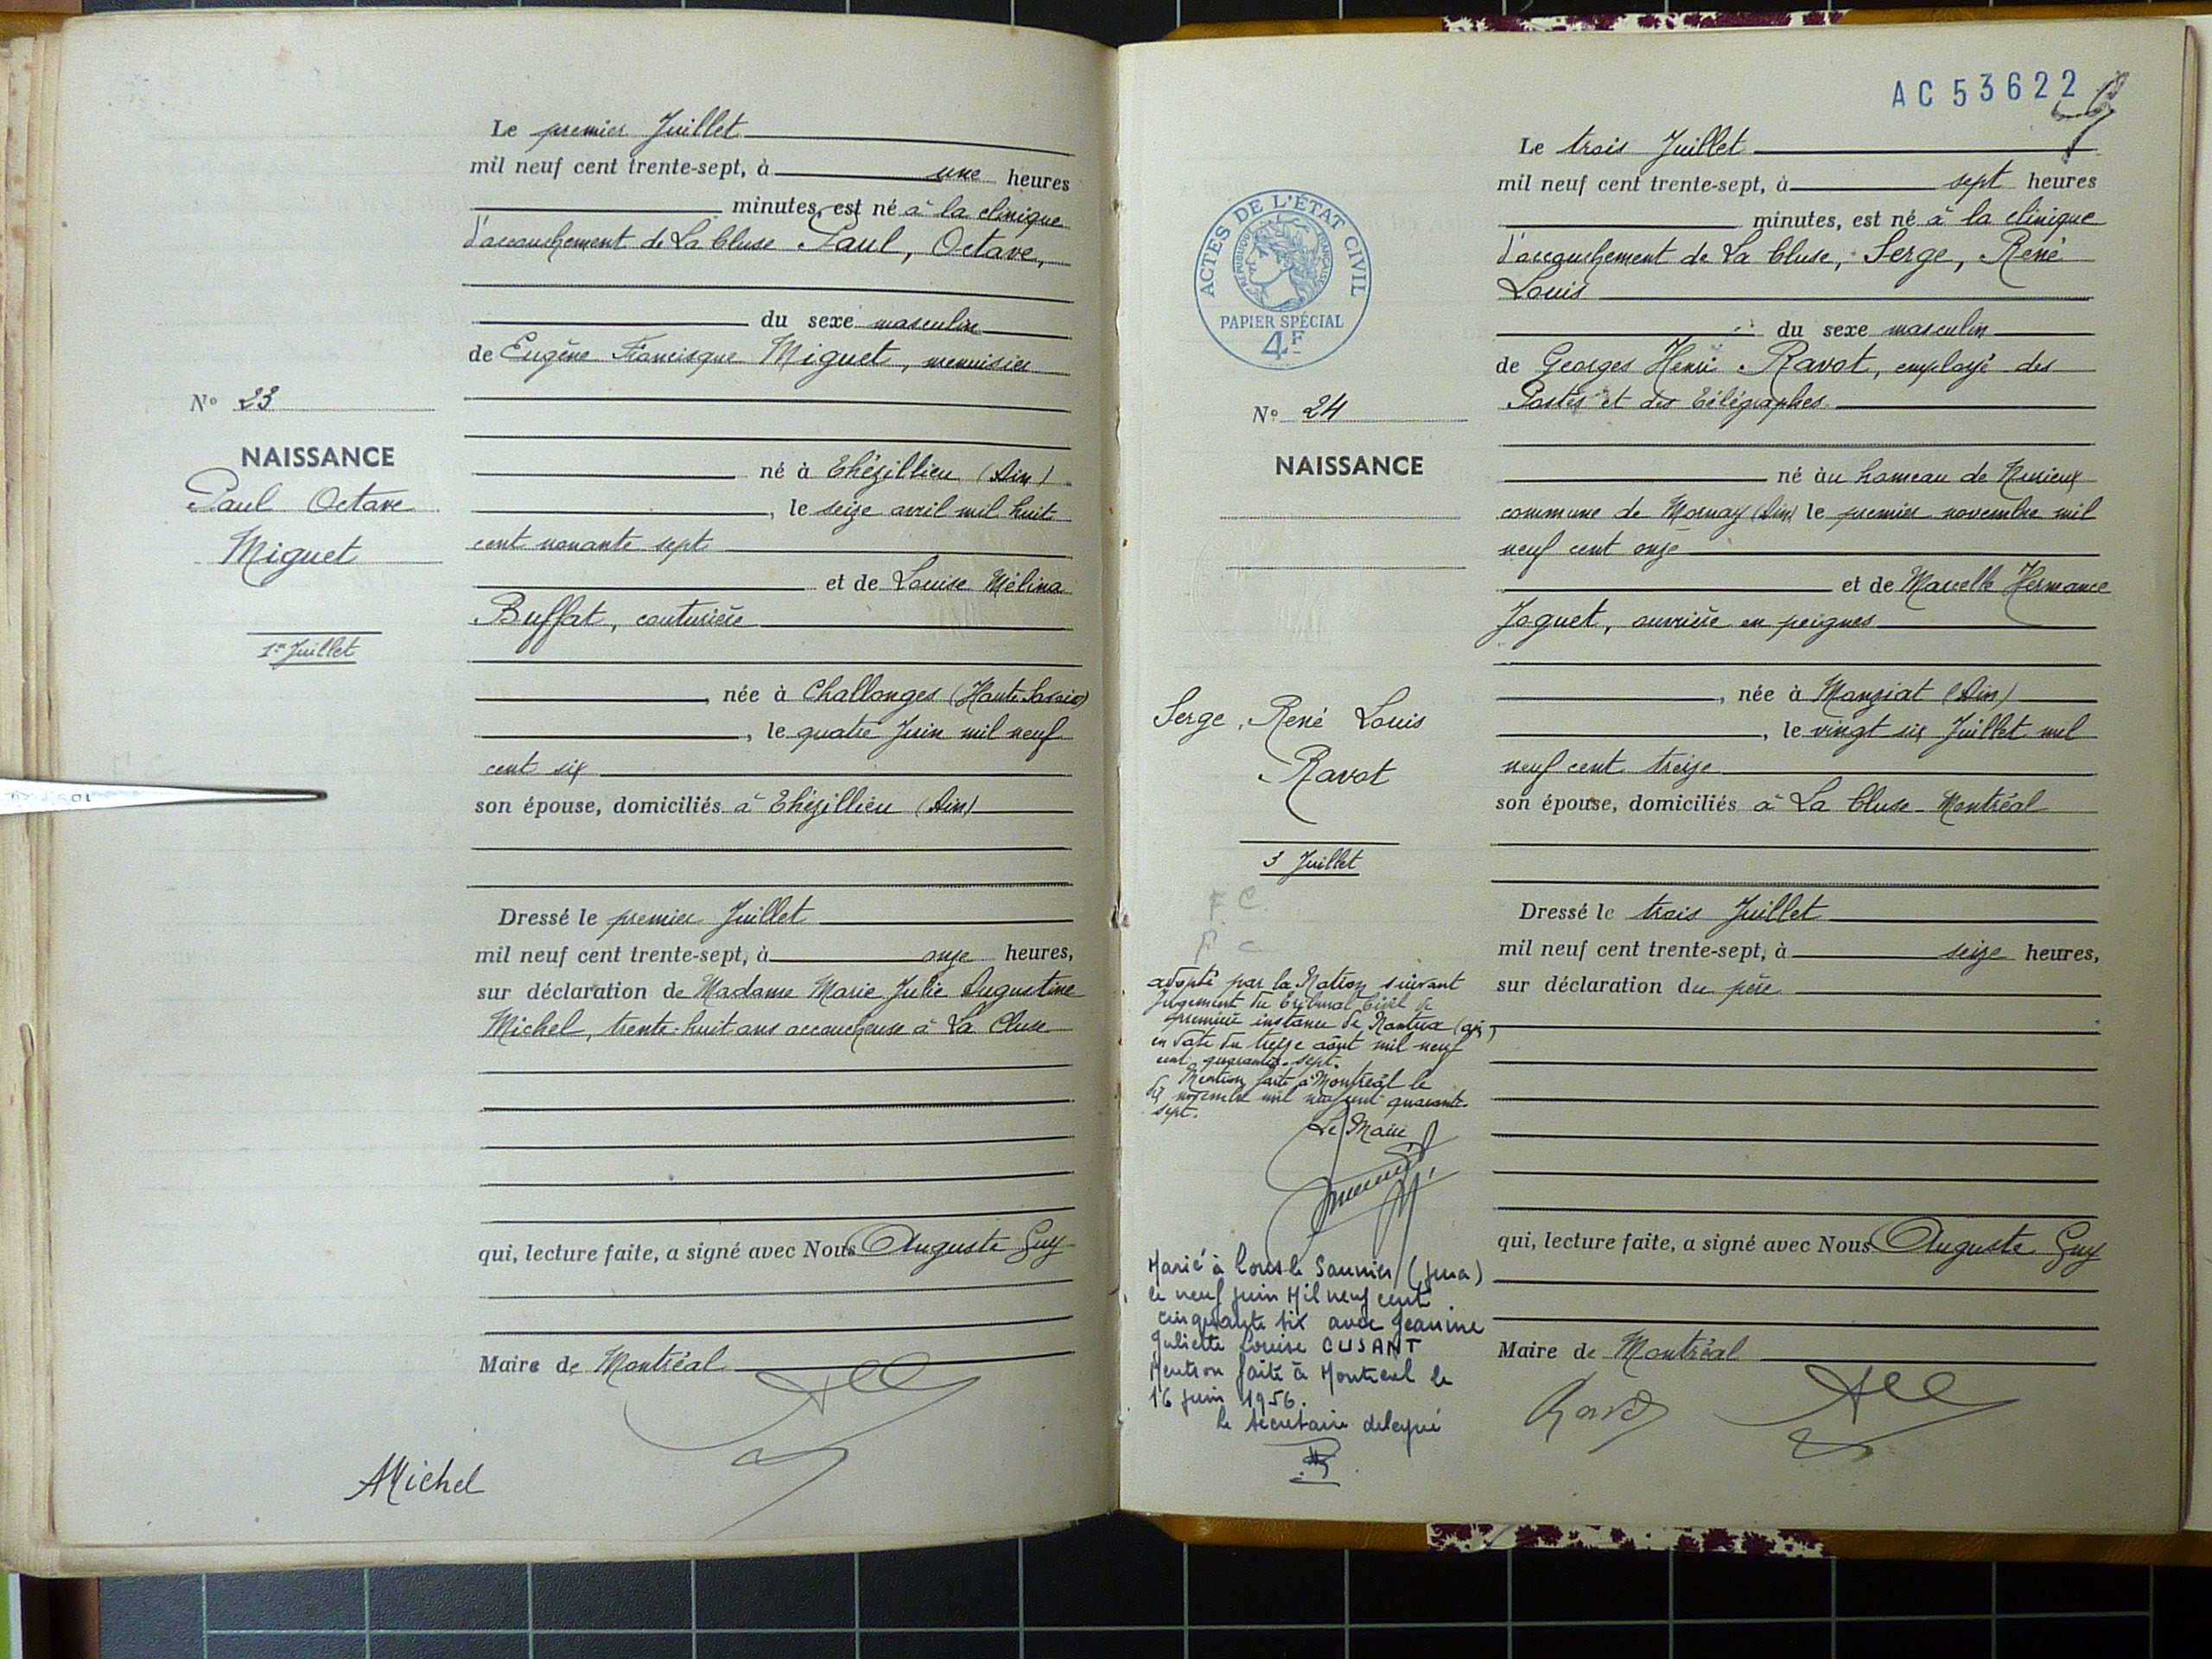 Le premier Juillet
mil neuf cent trente-sept, à une heures
minutes, est né à la clinique
d'accouchement de La Cluse Paul, Octave,
du sexe masculin
de Eugène Francisque Miguet, menuisier
N° 23
NAISSANCE
Paul Octave
Miguet
1er Juillet
né à Thézillieu (Ain)
, le seize avril mil huit
cent nonante sept
et de Louise Mélina
Buffat, couturière
, née à Challonges (Haute Savoie)
, le quatre Juin mil neuf
cent six
son épouse, domiciliés à Thézillieu (Ain)
Dressé le premier Juillet
mil neuf cent trente-sept, à onze heures,
sur déclaration de Madame Marie Julie Augustine
Michel, trente-huit ans accoucheuse à La Cluse
qui, lecture faite, a signé avec Nous Auguste Guy
Maire de Montréal
AMichel
AC 53622
Le trois Juillet
mil neuf cent trente-sept, à sept heures
minutes, est né à la clinique
d'accouchement de La Cluse, Serge, René
Louis
du sexe masculin
de Georges Henri Ravot, employé des
Postes et des Télégraphes.
ACTES DE L'ÉTAT CIVIL
RÉPUBLIQUE FRANÇAISE
PAPIER SPÉCIAL
4F
N° 24
NAISSANCE
Serge, René Louis
Ravot
3 Juillet
F C
F C
né au hameau de
commune de Mornay (Ain) le premier novembre mil
neuf cent onze
et de Marcelle Hermance
Joguet, ouvrière en peignes
, née à Manziat (Ain)
, le vingt six Juillet mil
neuf cent treize
son épouse, domiciliés à La Cluse-Montréal
Dressé le trois Juillet
mil neuf cent trente-sept, à seize heures,
sur déclaration du père
qui, lecture faite, a signé avec Nous Auguste Guy
Maire de Montréal
Ravot
adopté par la Nation suivant
Jugement du Tribunal Civil de
première instance de Nantua (ain)
en date du treize août mil neuf
cent quarante-sept.
Mention faite à Montréal le
dix novembre mil neuf cent quarante-
sept.
Le Maire
Marié à Lons le Saunier (Jura)
le neuf juin Mil neuf cent
cinquante six avec Jeanine
Juliette Louise CUSANT
Mention faite à Montreal le
16 juin 1956.
le secrétaire delegué